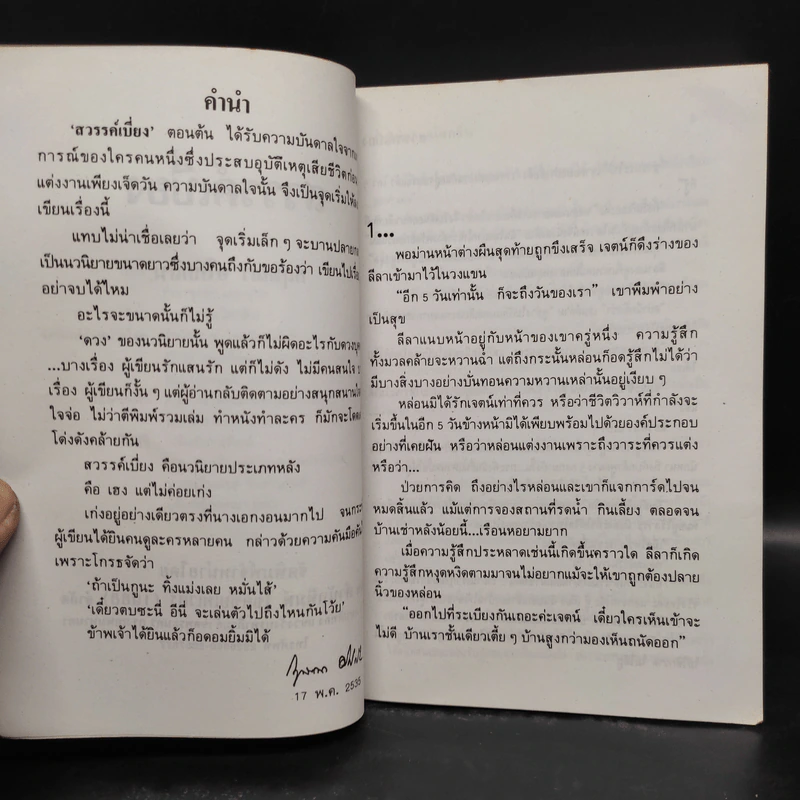 คำนำ
‘สวรรค์เบี่ยง’ ตอนต้น ได้รับความบันดาลใจจาก
การณ์ของใครคนหนึ่งซึ่งประสบอุบัติเหตุเสียชีวิตก่อน
แต่งงานเพียงเจ็ดวัน ความบันดาลใจนั้น จึงเป็นจุดเริ่มให้
เขียนเรื่องนี้
แทบไม่น่าเชื่อเลยว่า จุดเริ่มเล็ก ๆ จะบานปลาย
เป็นนวนิยายขนาดยาวซึ่งบางคนถึงกับขอร้องว่า เขียนไปเรื่อย
อย่าจบได้ไหม
อะไรจะขนาดนั้นก็ไม่รู้
‘ดวง’ ของนวนิยายนั้น พูดแล้วก็ไม่ผิดอะไรกับดวง
...บางเรื่อง ผู้เขียนรักแสนรัก แต่ก็ไม่ดัง ไม่มีคนสนใจ
เรื่อง ผู้เขียนก็งั้น ๆ แต่ผู้อ่านกลับติดตามอย่างสนุกสนาน
ใจจ่อ ไม่ว่าตีพิมพ์รวมเล่ม ทำหนังทำละคร ก็มักจะ
โด่งดังคล้ายกัน
สวรรค์เบี่ยง คือนวนิยายประเภทหลัง
คือ เฮง แต่ไม่ค่อยเก่ง
เก่งอยู่อย่างเดียวตรงที่นางเอกงอนมากไป จน
ผู้เขียนได้ยินคนดูละครหลายคน กล่าวด้วยความคันมือคัน
เพราะโกรธจัดว่า
‘ถ้าเป็นกูนะ ทิ้งแม่งเลย หมั่นไส้’
‘เดี๋ยวตบซะนี่ อีนี่ จะเล่นตัวไปถึงไหนกันโว้ย’
ข้าพเจ้าได้ยินแล้วก็อดอมยิ้มมิได้
17 พ.ค. 2535
1...
พอม่านหน้าต่างผืนสุดท้ายถูกขึงเสร็จ เจตน์ก็ดึงร่างของ
ลีลาเข้ามาไว้ในวงแขน
“อีก 5 วันเท่านั้น ก็จะถึงวันของเรา” เขาพึมพำอย่าง
เป็นสุข
ลีลาแนบหน้าอยู่กับหน้าของเขาครู่หนึ่ง ความรู้สึก
ทั้งมวลคล้ายจะหวานฉ่ำ แต่ถึงกระนั้นหล่อนก็อดรู้สึกไม่ได้ว่า
มีบางสิ่งบางอย่างบั่นทอนความหวานเหล่านั้นอยู่เงียบ ๆ
หล่อนมิได้รักเจตน์เท่าที่ควร หรือว่าชีวิตวิวาห์ที่กำลังจะ
เริ่มขึ้นในอีก 5 วันข้างหน้ามิได้เพียบพร้อมไปด้วยองค์ประกอบ
อย่างที่เคยฝัน หรือว่าหล่อนแต่งงานเพราะถึงวาระที่ควรแต่ง
หรือว่า...
ป่วยการคิด ถึงอย่างไรหล่อนและเขาก็แจกการ์ดไปจน
หมดสิ้นแล้ว แม้แต่การจองสถานที่รดน้ำ กินเลี้ยง ตลอดจน
บ้านเช่าหลังน้อยนี้...เรือนหอยามยาก
เมื่อความรู้สึกประหลาดเช่นนี้เกิดขึ้นคราวใด ลีลาก็เกิด
ความรู้สึกหงุดหงิดตามมาจนไม่อยากแม้จะให้เขาถูกต้องปลาย
นิ้วของหล่อน
“ออกไปที่ระเบียงกันเถอะค่ะเจตน์ เดี๋ยวใครเห็นเข้าจะ
ไม่ดี บ้านเราชั้นเดียวเตี้ย ๆ บ้านสูงกว่ามองเห็นถนัดออก”